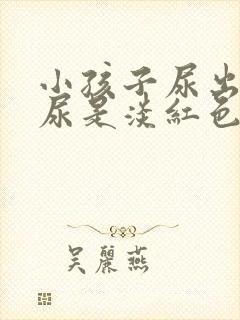 小孩子尿出
尿是淡紅色
吳麗燕